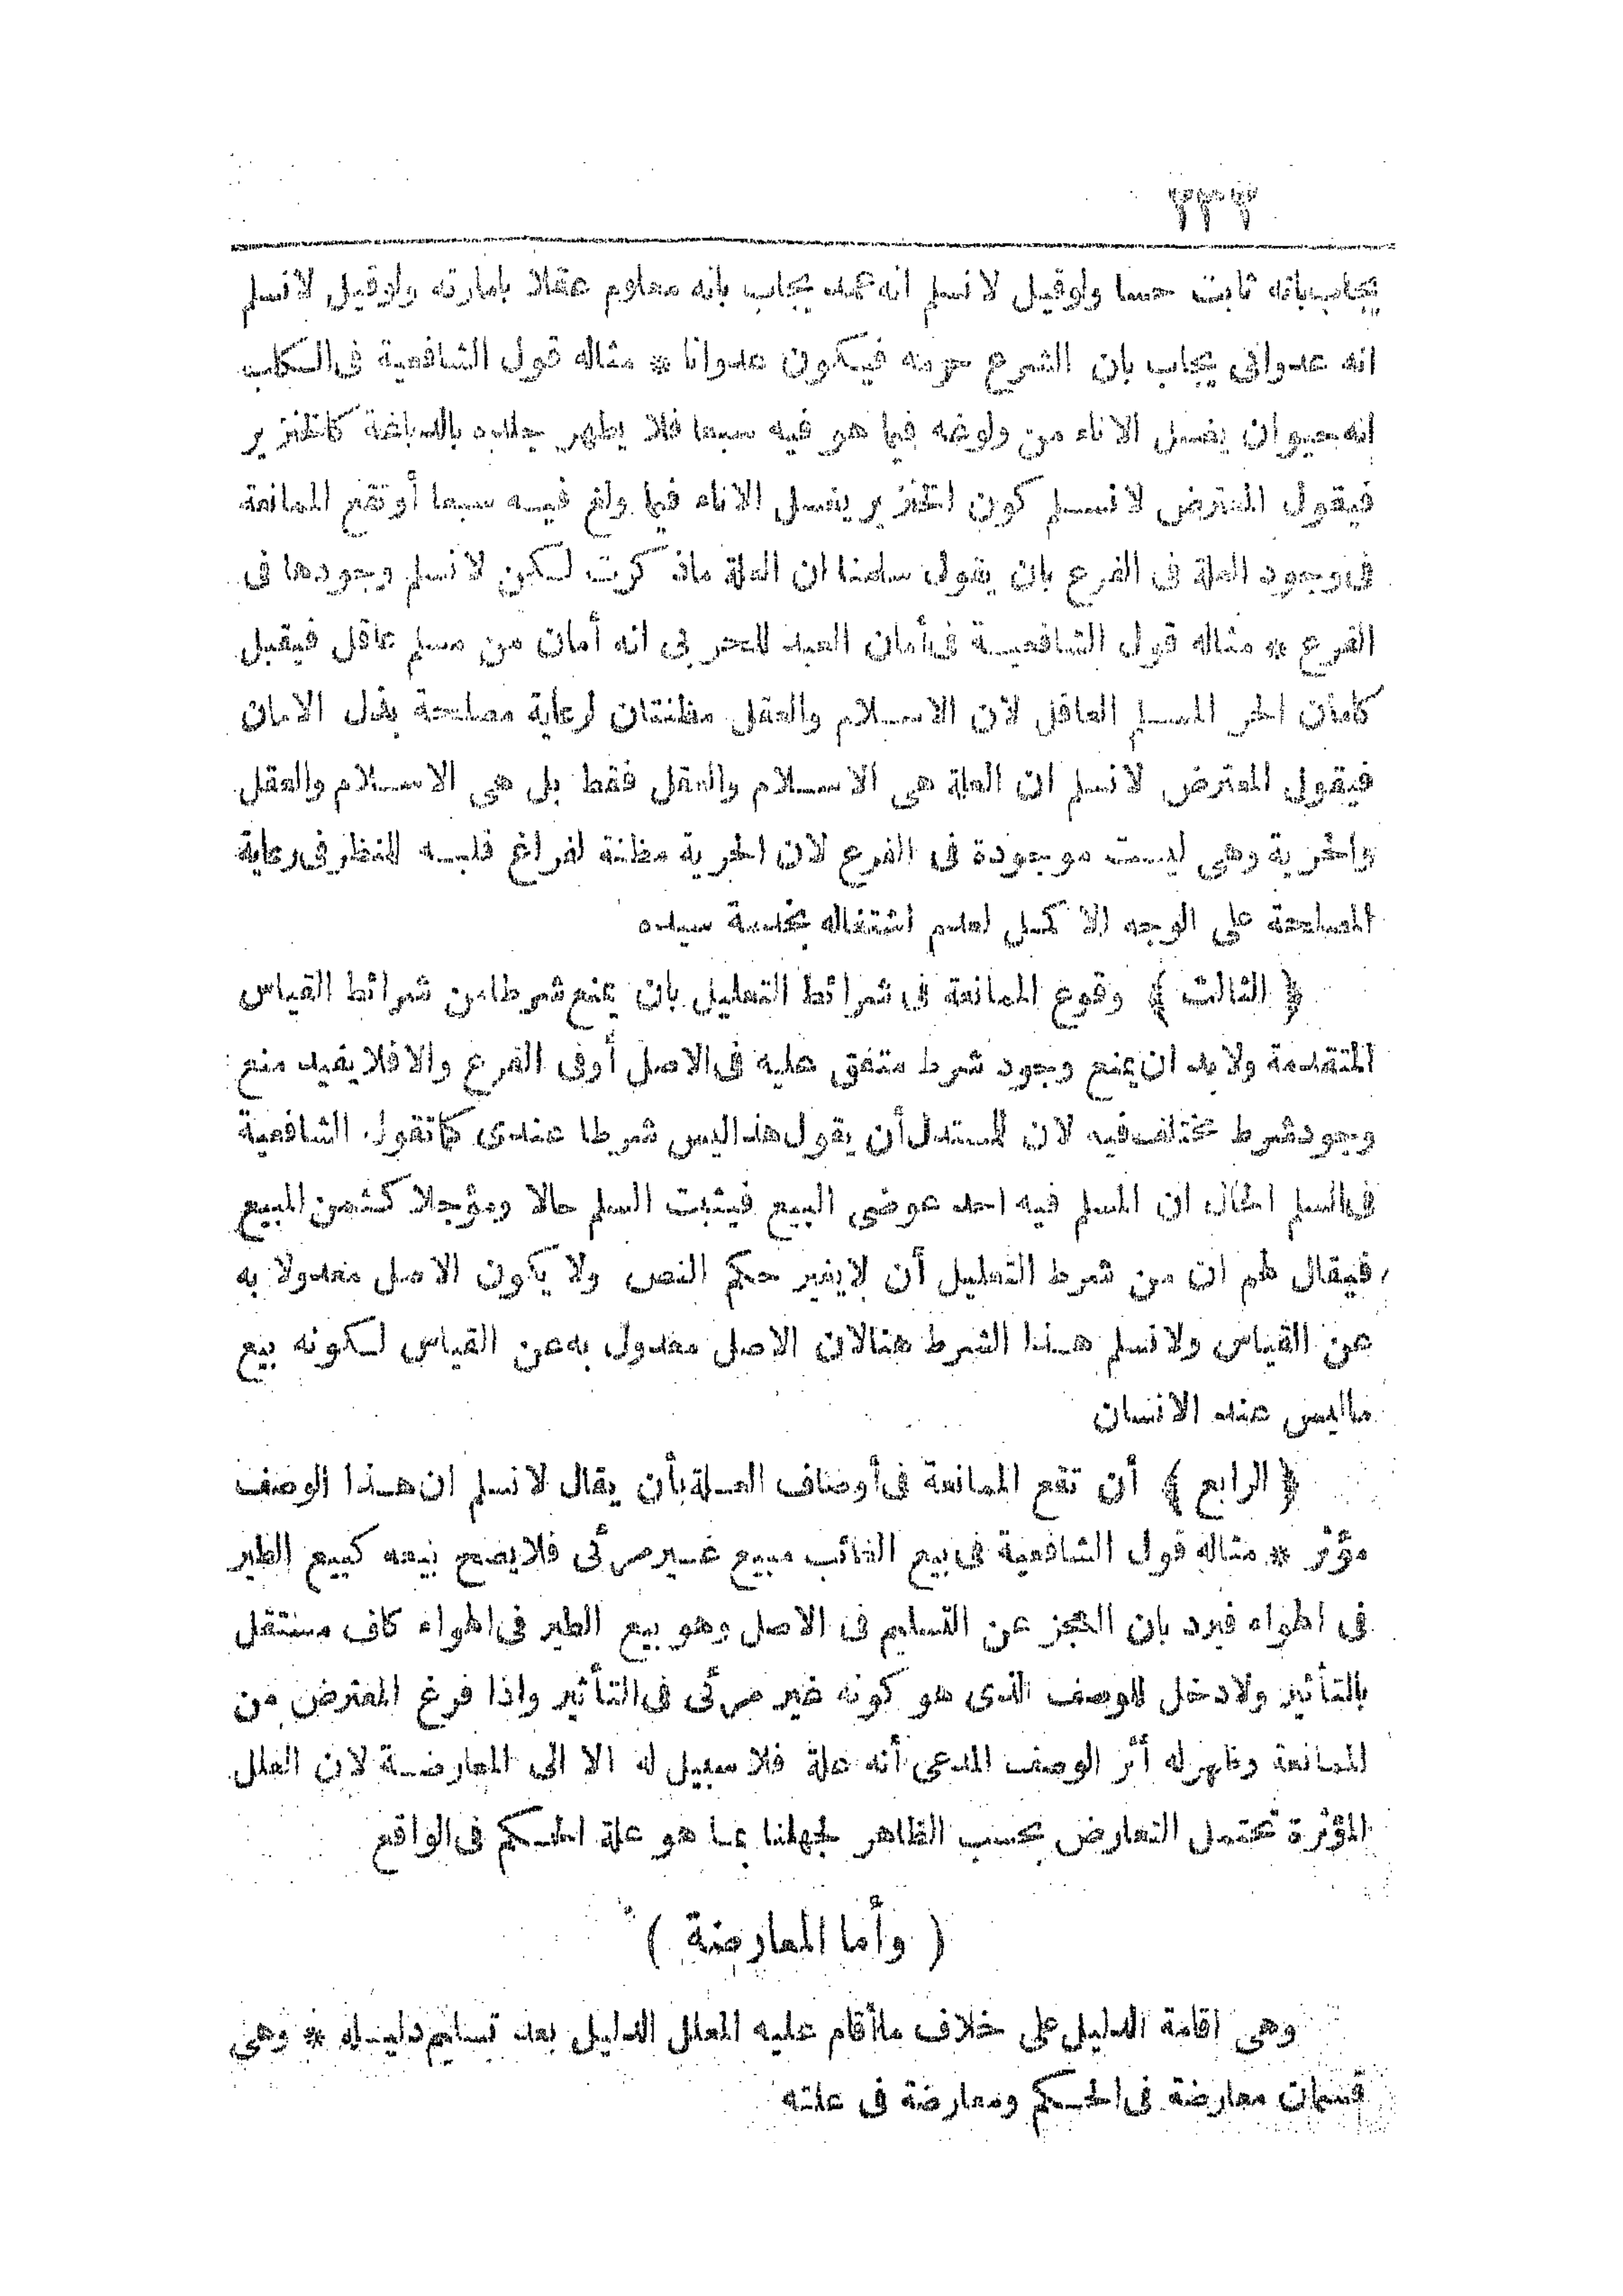 ٢٣٣
يجاب بانه ثابت حسا ولو قيل لا نسلم انه عمد يجاب بانه معلوم عقلا بامارته ولو قيل لا نسلم
انه عدوانى يجاب بان الشرع حرمه فيكون عدوانا * مثاله قول الشافعية فى الكلب
انه حيوان يغسل الاناء من ولوغه فيما هو فيه سبعا فلا يطهر جلده بالدباغة كالخنزير
فيقول المعترض لا نسلم كون الخنزير يغسل الاناء فيما ولغ فيه سبعا أو تقع الممانعة
فى وجود العلة فى الفرع بان يقول سلمنا ان العلة ماذكرت لكن لا نسلم وجودها فى
الفرع * مثاله قول الشافعية فى أمان العبد للحربى انه أمان من مسلم عاقل فيقبل
كامان الحر المسلم العاقل لان الاسلام والعقل مظنتان لرعاية مصلحة بذل الامان
فيقول المعترض لا نسلم ان العلة هى الاسلام والعقل فقط بل هى الاسلام والعقل
والحرية وهى ليست موجودة فى الفرع لان الحرية مظنة لفراغ قلبه للنظر فى رعاية
المصلحة على الوجه الاكمل لعدم اشتغاله بخدمة سيده
﴿ الثالث ﴾ وقوع الممانعة فى شرائط التعليل بان يمنع شرطا من شرائط القياس
المتقدمة ولا بد ان يمنع وجود شرط متفق عليه فى الاصل أو فى الفرع والا فلا يفيد منع
وجود شرط مختلف فيه لان للمستدل أن يقول هذا ليس شرطا عندى كما تقول الشافعية
فى السلم الحال ان المسلم فيه احد عوضى البيع فيثبت السلم حالا ومؤجلا كثمن المبيع
فيقال لهم ان من شرط التعليل أن لا يغير حكم النص ولا يكون الاصل معدولا به
عن القياس ولا نسلم هذا الشرط هنا لان الاصل معدول به عن القياس لكونه بيع
ما ليس عند الانسان
﴿ الرابع ﴾ أن تقع الممانعة فى أوصاف العلة بأن يقال لا نسلم ان هذا الوصف
مؤثر * مثاله قول الشافعية فى بيع الغائب مبيع غير مرئى فلا يصح بيعه كبيع الطير
فى الهواء فيرد بان العجز عن التسليم فى الاصل وهو بيع الطير فى الهواء كاف مستقل
بالتأثير ولا دخل للوصف الذى هو كونه غير مرئى فى التأثير واذا فرغ المعترض من
الممانعة وظهر له أثر الوصف المدعى أنه علة فلا سبيل له الا الى المعارضة لان العلل
المؤثرة تحتمل التعارض بحسب الظاهر لجهلنا بما هو علة الحكم فى الواقع
( وأما المعارضة )
وهى اقامة الدليل على خلاف ما أقام عليه المعلل الدليل بعد تسليم دليله * وهى
قسمان معارضة فى الحكم ومعارضة فى علته